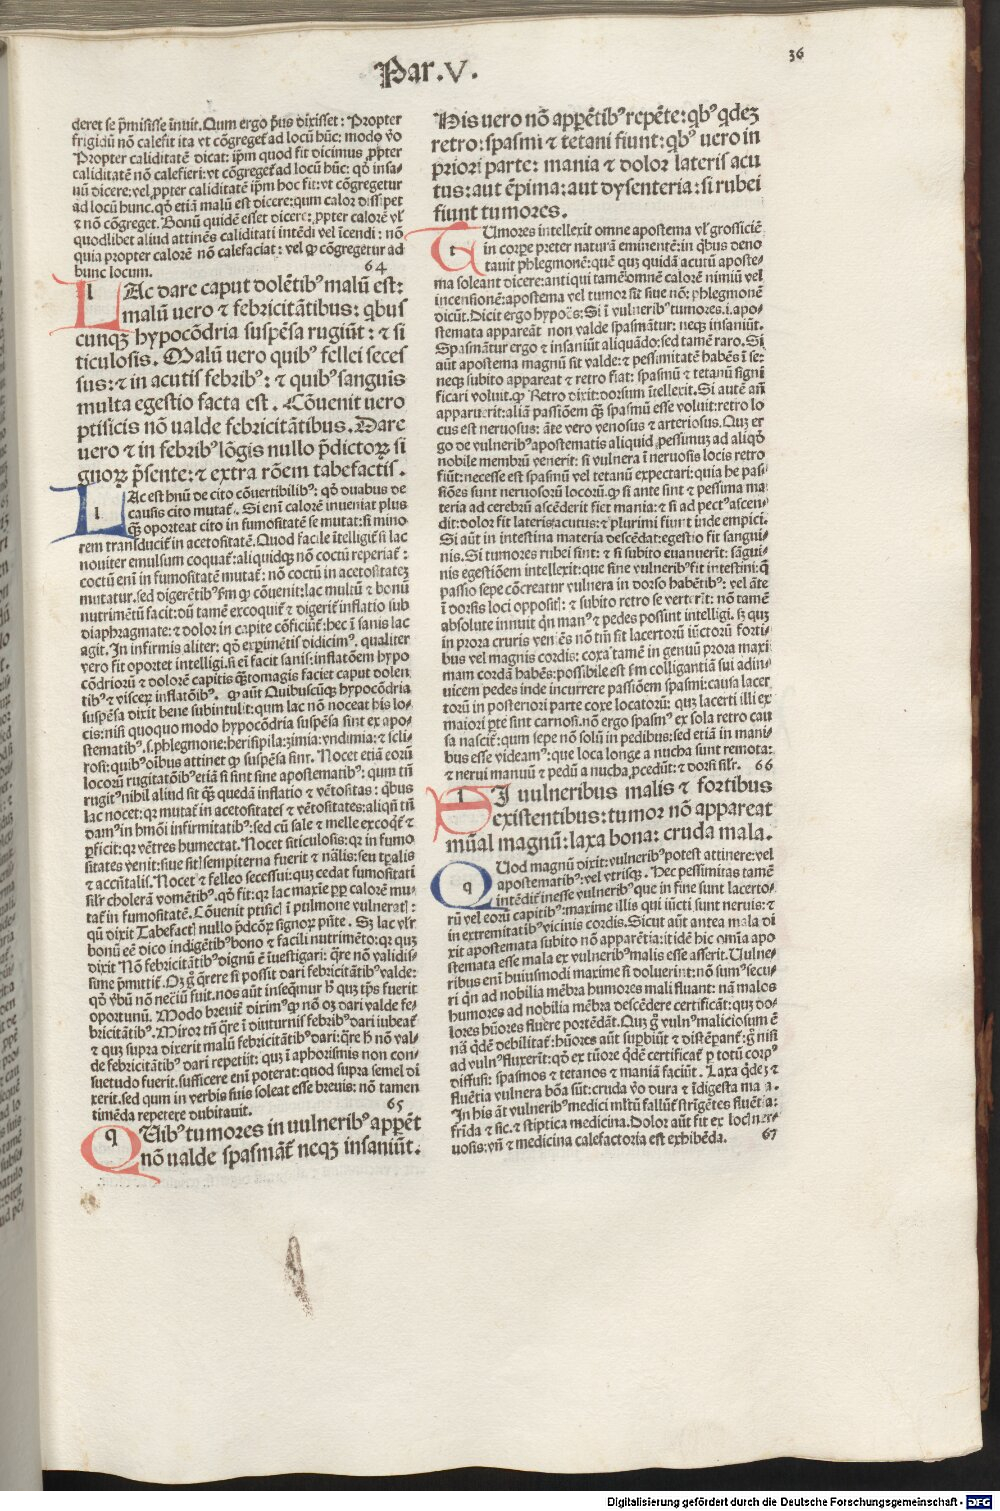 Par.V.
36
deret se p̄misisse īnuit. Qum ergo p̄us dixisset: Propter
frigidū nō calefit ita vt cōgreget̄ ad locū hūc: modo v̄o
Propter caliditatē dicat: ip̄m quod fit dicimus ꝓpter
caliditatē nō calefieri: vt cōgreget̄ ad locū hūc: qō insa-
nū dicere: vel ꝓpter caliditatē ip̄m hoc fit: vt cōgregetur
ad locū hunc. qō etiā malū est dicere: qum calor dissipet
⁊ nō cōgreget. Bonū quidē esset dicere: ꝓpter calorē vł
quodlibet aliud attinēs caliditati intēdi vel īcendi: nō
quia propter calorē nō calefaciat: vel ꝙ cōgregetur ad
hunc locum. 64
LAc dare caput dolētibꝰ malū est:
malū uero ⁊ febricitātibus: qbus
cunqꝫ hypocōdria suspēsa rugiūt: ⁊ si
ticulosis. Malū uero quibꝰ fellei seces
sus: ⁊ in acutis febribꝰ: ⁊ quibꝰ sanguis
multa egestio facta est. Cōuenit uero
ptisicis nō ualde febricitātibus. Dare
uero ⁊ in febribꝰ lōgis nullo p̄dictoꝝ si
gnoꝝ p̄sente: ⁊ extra rōem tabefactis.
LAc est hnū de cito cōuertibilibꝰ: qō duabus de
causis cito mutat̄. Si enī calorē inueniat plus
qꝫ oporteat cito in fumositatē se mutat: si mino
rem transducit̄ in acetositatē. Quod facile ītelligit̄ si lac
nouiter emulsum coquat̄: aliquidqꝫ nō coctū reperiat̄:
coctū enī in fumositatē mutat̄: nō coctū in acetositateꝫ
mutatur. sed digerētibꝰ fm ꝙ cōuenit: lac multū ⁊ bonū
nutrimētū facit: dū tamē excoquit̄ ⁊ digerit̄ inflatio sub
diaphragmate: ⁊ dolor in capite cōficiūt̄: hec ī sanis lac
agit. In infirmis aliter: qō exꝑimētis didicimꝰ. qualiter
vero fit oportet intelligi. si enī facit sanis: inflatōem hypo
cōdriorū ⁊ dolorē capitis qꝫtomagis faciet caput dolen
tibꝰ ⁊ visceꝝ inflatōibꝰ. ꝙ aūt Quibuscūqꝫ hypocōdria
suspēsa dixit bene subintulit: qum lac nō noceat his lo-
cis: nisi quoquo modo hypocōdria suspēsa sint ex apo-
stematibꝰ. s. phlegmone: herisipila: zimia: vndimia: ⁊ scli-
rosi: quibꝰ oībus attinet ꝙ suspēsa sint. Nocet etiā eorū
locorū rugitatōibꝰ etiā si sint sine apostematibꝰ: qum tn̄
rugitꝰ nihil aliud sit qꝫ quedā inflatio ⁊ vētositas: qbus
lac nocet: qr mutat̄ in acetositatē ⁊ vētositates: aliqū tn̄
damꝰ in hmōi infirmitatibꝰ: sed cū sale ⁊ melle excoq̄t̄ ⁊
ꝑficit: qr vētres humectat. Nocet siticulosis: qr in fumo
sitates v̄enit: siue sit̄ sempiterna fuerit ⁊ nālis: seu tꝑalis
⁊ accn̄talis. Nocet ⁊ felleo secessui: quꝫ cedat fumositati
silꝛ cholerā vomētibꝰ. qō fit: qꝫ lac maxīe ꝓp̄ calorē mu-
tat̄ in fumositatē. Cōuenit ptisic̄ ī pulmone vulnerat̄:
qū dixit Tabefact̄ nullo p̄dcōꝝ signoꝝ p̄nte. Sꝫ lac vłr
bonū eē dico indigētibꝰ bono ⁊ facili nutrimēto: qꝫ quꝫ
dixit Nō febricitātibꝰ dignū ē īuestigari: q̄re nō validis-
sime p̄mutit̄. Oꝫ gͦ q̄rere si possit dari febricitātibꝰ valde:
qō v̄bū nō neciū fuit. nos aūt inseq̄mur h̄ quꝫ tp̄s fuerit
oportunū. Modo breuit̄ diximꝰ ꝙ nō oꝫ dari valde fe-
bricitātibꝰ. Miror tn̄ q̄re ī diuturnis febribꝰ dari iubeat̄
⁊ quꝫ supra dixerit malū febricitātibꝰ dari: q̄re h̄ nō val-
de febricitātibꝰ dari repetijt: quꝫ ī aphorismis non con-
suetudo fuerit. sufficere enī poterat: quod supra semel di
xerit. sed qum in verbis suis soleat esse breuis: nō tamen
timēda repetere dubitauit. 65
QUibꝰ tumores in uulneribꝰ appēt
nō ualde spasmāt̄ neqꝫ insaniūt.
His uero nō appētibꝰ repēte: qbꝰ qdeꝫ
retro: spasmi ⁊ tetani fiunt: qbꝰ uero in
priori parte: mania ⁊ dolor lateris acu
tus: aut ēpima: aut dysenteria: si rubei
fiunt tumores.
TUmores intellexit omne apostema vł grossiciē
in corꝑe preter naturā eminentē: in qbus deno
tauit phlegmonē: quē quꝫ quidā acutū aposte-
ma soleant dicere: antiqui tamē omnē calorē nimiū vel
incensionē: apostema vel tumor sit siue nō: phlegmonē
dicūt. Dicit ergo hypocs̄: Si ī vulneribꝰ tumores. i. apo-
stemata appareāt non valde spasmātur: neqꝫ insaniūt.
Spasmātur ergo ⁊ insaniūt aliquādo: sed tamē raro. Si
aūt apostema magnū sit valde: ⁊ pessimitatē habēs ī se:
neqꝫ subito appareat ⁊ retro fiat: spasmū ⁊ tetanū signi
ficari voluit. ꝙ Retro dixit: dorsum ītellexit. Si autē an̄
apparuerit: aliā passiōem qꝫ spasmū esse voluit: retro lo
cus est neruosus: āte vero venosus ⁊ arteriosus. Quꝫ er
go de vulneribꝰ apostematis aliquid pessimuꝫ ad aliqō
nobile membrū venerit: si vulnera ī neruosis locis retro
fiūt: necesse est spasmū vel tetanū expectari: quia he pas-
siōes sunt neruosorū locorū. ꝙ si ante sint ⁊ pessima ma-
teria ad cerebrū ascēderit fiet mania: ⁊ si ad pectꝰ ascen-
dit: dolor fit lateris acutus: ⁊ plurimi fiunt inde empici.
Si aūt in intestina materia descēdat: egestio fit sangui-
nis. Si tumores rubei sint: ⁊ si subito euanuerit: sāgui-
nis egestiōem intellexit: que sine vulneribꝰ fit intestini: q̄
passio sepe cōcreatur vulnera in dorso habētibꝰ: vel āte
ī dorsis loci opposit̄: ⁊ subito retro se verterīt: nō tamē
absolute innuit qn manꝰ ⁊ pedes possint intelligi. sꝫ quꝫ
in prora cruris veniēs nō tm̄ sit lacertorū iūctorū forti-
bus vel magnis cordis: coxa tamē in genuū prora maxi
mam cordā habēs: possibile est fm colligantiā sui adin-
uicem pedes inde incurrere passiōem spasmi: causa lacer
torū in posteriori parte coxe locatorū: quꝫ lacerti illi ex
maiori ꝑte sint carnosi. nō ergo spasmꝰ ex sola retro cau
sa nascit̄: qum sepe nō solū in pedibus: sed etiā in mani-
bus esse videamꝰ: que loca longe a nucha sunt remota:
⁊ nerui manuū ⁊ pedū a nucha ꝓcedūt: ⁊ dorsi silꝛ. 66
SI uulneribus malis ⁊ fortibus
existentibus: tumor nō appareat
mūal magnū: laxa bona: cruda mala.
QUod magnū dixit: vulneribꝰ potest attinere: vel
apostematibꝰ: vel vtrisqꝫ. Hec pessimitas tamē
intēdit̄ inesse vulneribꝰ que in fine sunt lacerto-
rū vel eorū capitibꝰ: maxime illis qui iūcti sunt neruis: ⁊
in extremitatibꝰ vicinis cordis. Sicut aūt antea mala di
xit apostemata subito nō apparētia: itidē hic omīa apo
stemata esse mala ex vulneribꝰ malis esse asserit. Uulne-
ribus enī huiusmodi maxime si doluerint: nō sumꝰ secu-
ri qn ad nobilia mēbra humores mali fluant: nā malos
humores ad nobilia mēbra descēdere certificāt: quꝫ do-
lores hūores fluere portēdāt. Quꝫ gͦ vulnꝰ maliciosum ē
nā q̄dē debilitat̄: hūores aūt supbiūt ⁊ distēpant̄: gͦ nisi
ad vulnꝰ fluxerīt: qō ex tūore q̄dē certificat̄ ꝑ totū corpꝰ
diffusi: spasmos ⁊ tetanos ⁊ maniā faciūt. Laxa q̄deꝫ ⁊
fluētia vulnera bōa sūt: cruda v̄o dura ⁊ īdigesta mala.
In his āt vulneribꝰ medici mltū fallūt̄ strīgētes fluētia:
frīda ⁊ sic. ⁊ stiptica medicina. Dolor aūt fit ex loc̄ ner-
uosis: vn̄ ⁊ medicina calefactoria est exhibēda. 67
Digitalisierung gefördert durch die Deutsche Forschungsgemeinschaft - DFG